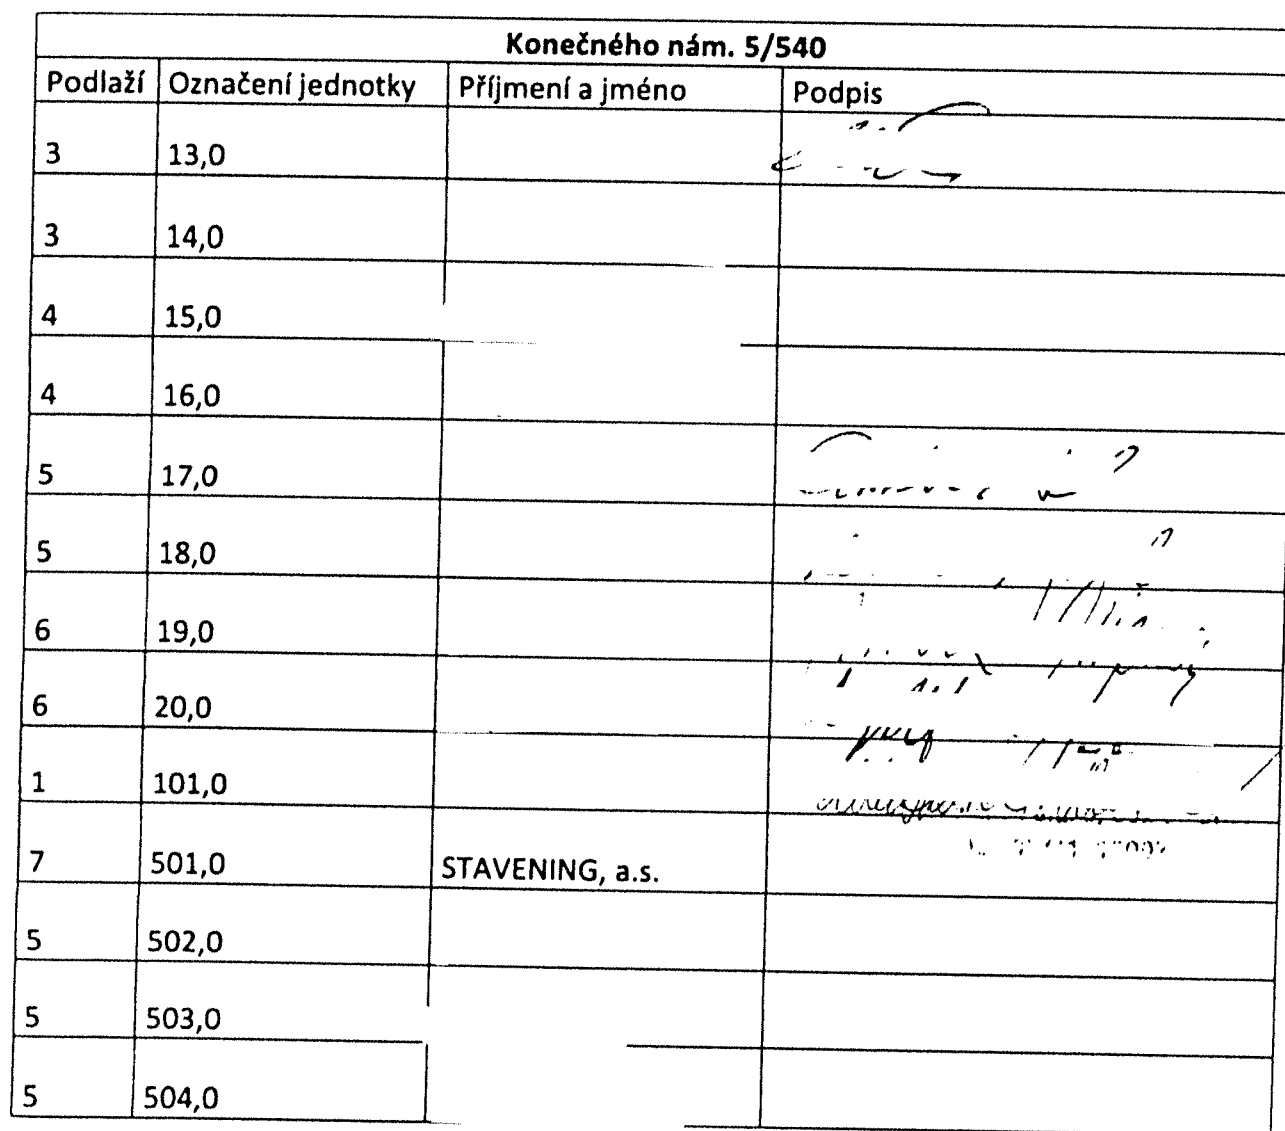 Konečného nám. 5/540
Podlaží Označení jednotky Příjmení a jméno Podpis
3 13,0
3 14,0
4 15,0
4 16,0
5 17,0
5 18,0
6 19,0
6 20,0
1 101,0
7 501,0 STAVENING, a.s.
5 502,0
5 503,0
5 504,0